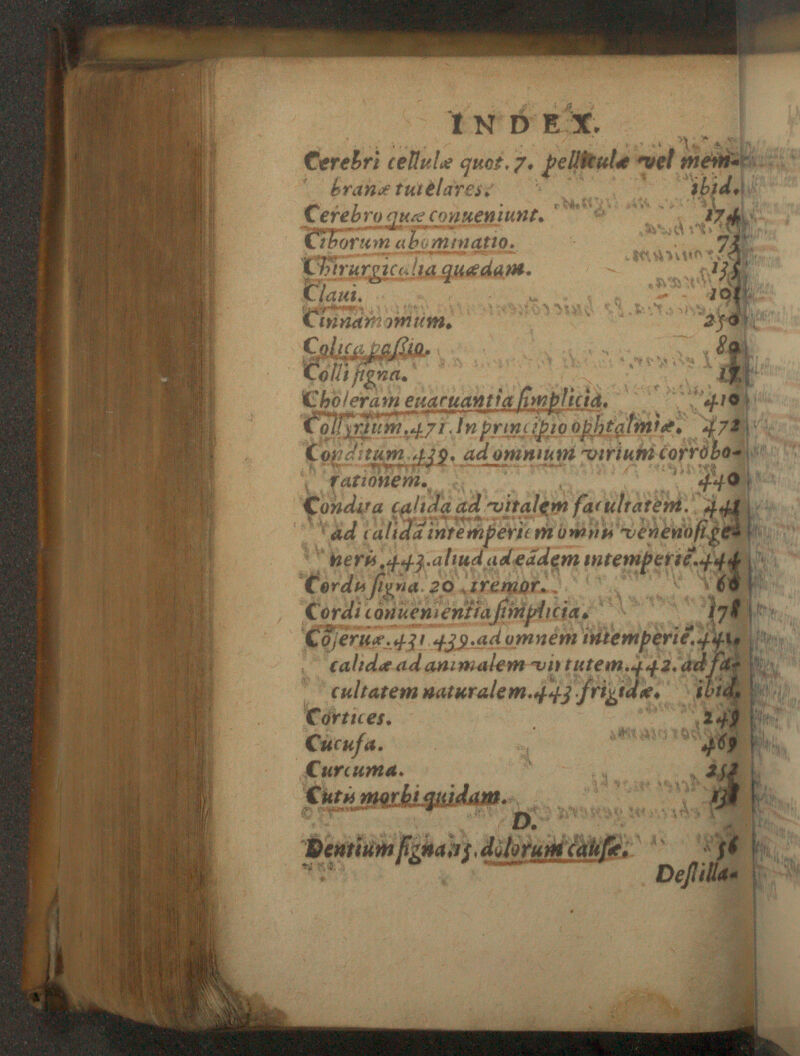 INDEX.
Cerebri cellulæ quot. 7. pelliculæ vel mem-
branæ tutelares. ibid.
Cerebro quæ conueniunt. 174
Ciborum abominatio. 73
Chirurgicalia quædam. 133
Claui.
Cinnamomum. 250
Colica passio.
Colli signa.
Choleram euacuantia simplicia. 410
Collyrium. 471. In principio ophtalmiæ. 472
Conditum. 439. ad omnium virium corrobo-
rationem. 440
Condita calida ad vitalem facultatem. 441
ad calidã intemperiem omnis venenosi ge-
neris. 443. aliud ad eãdem intemperiẽ. 444
Cordis signa. 20. tremor. 68
Cordi conuenientia simplicia. 178
Cõseruæ. 431. 439. ad omnem intemperiẽ.
calidæ ad animalem virtutem. 442. ad fa-
cultatem naturalem. 443 frigidæ. ibid.
Cortices. 249
Cucufa. 469
Curcuma.
Cutis morbi quidam. 138
D.
Dentium signa. dolorum causæ. 36
Destilla-